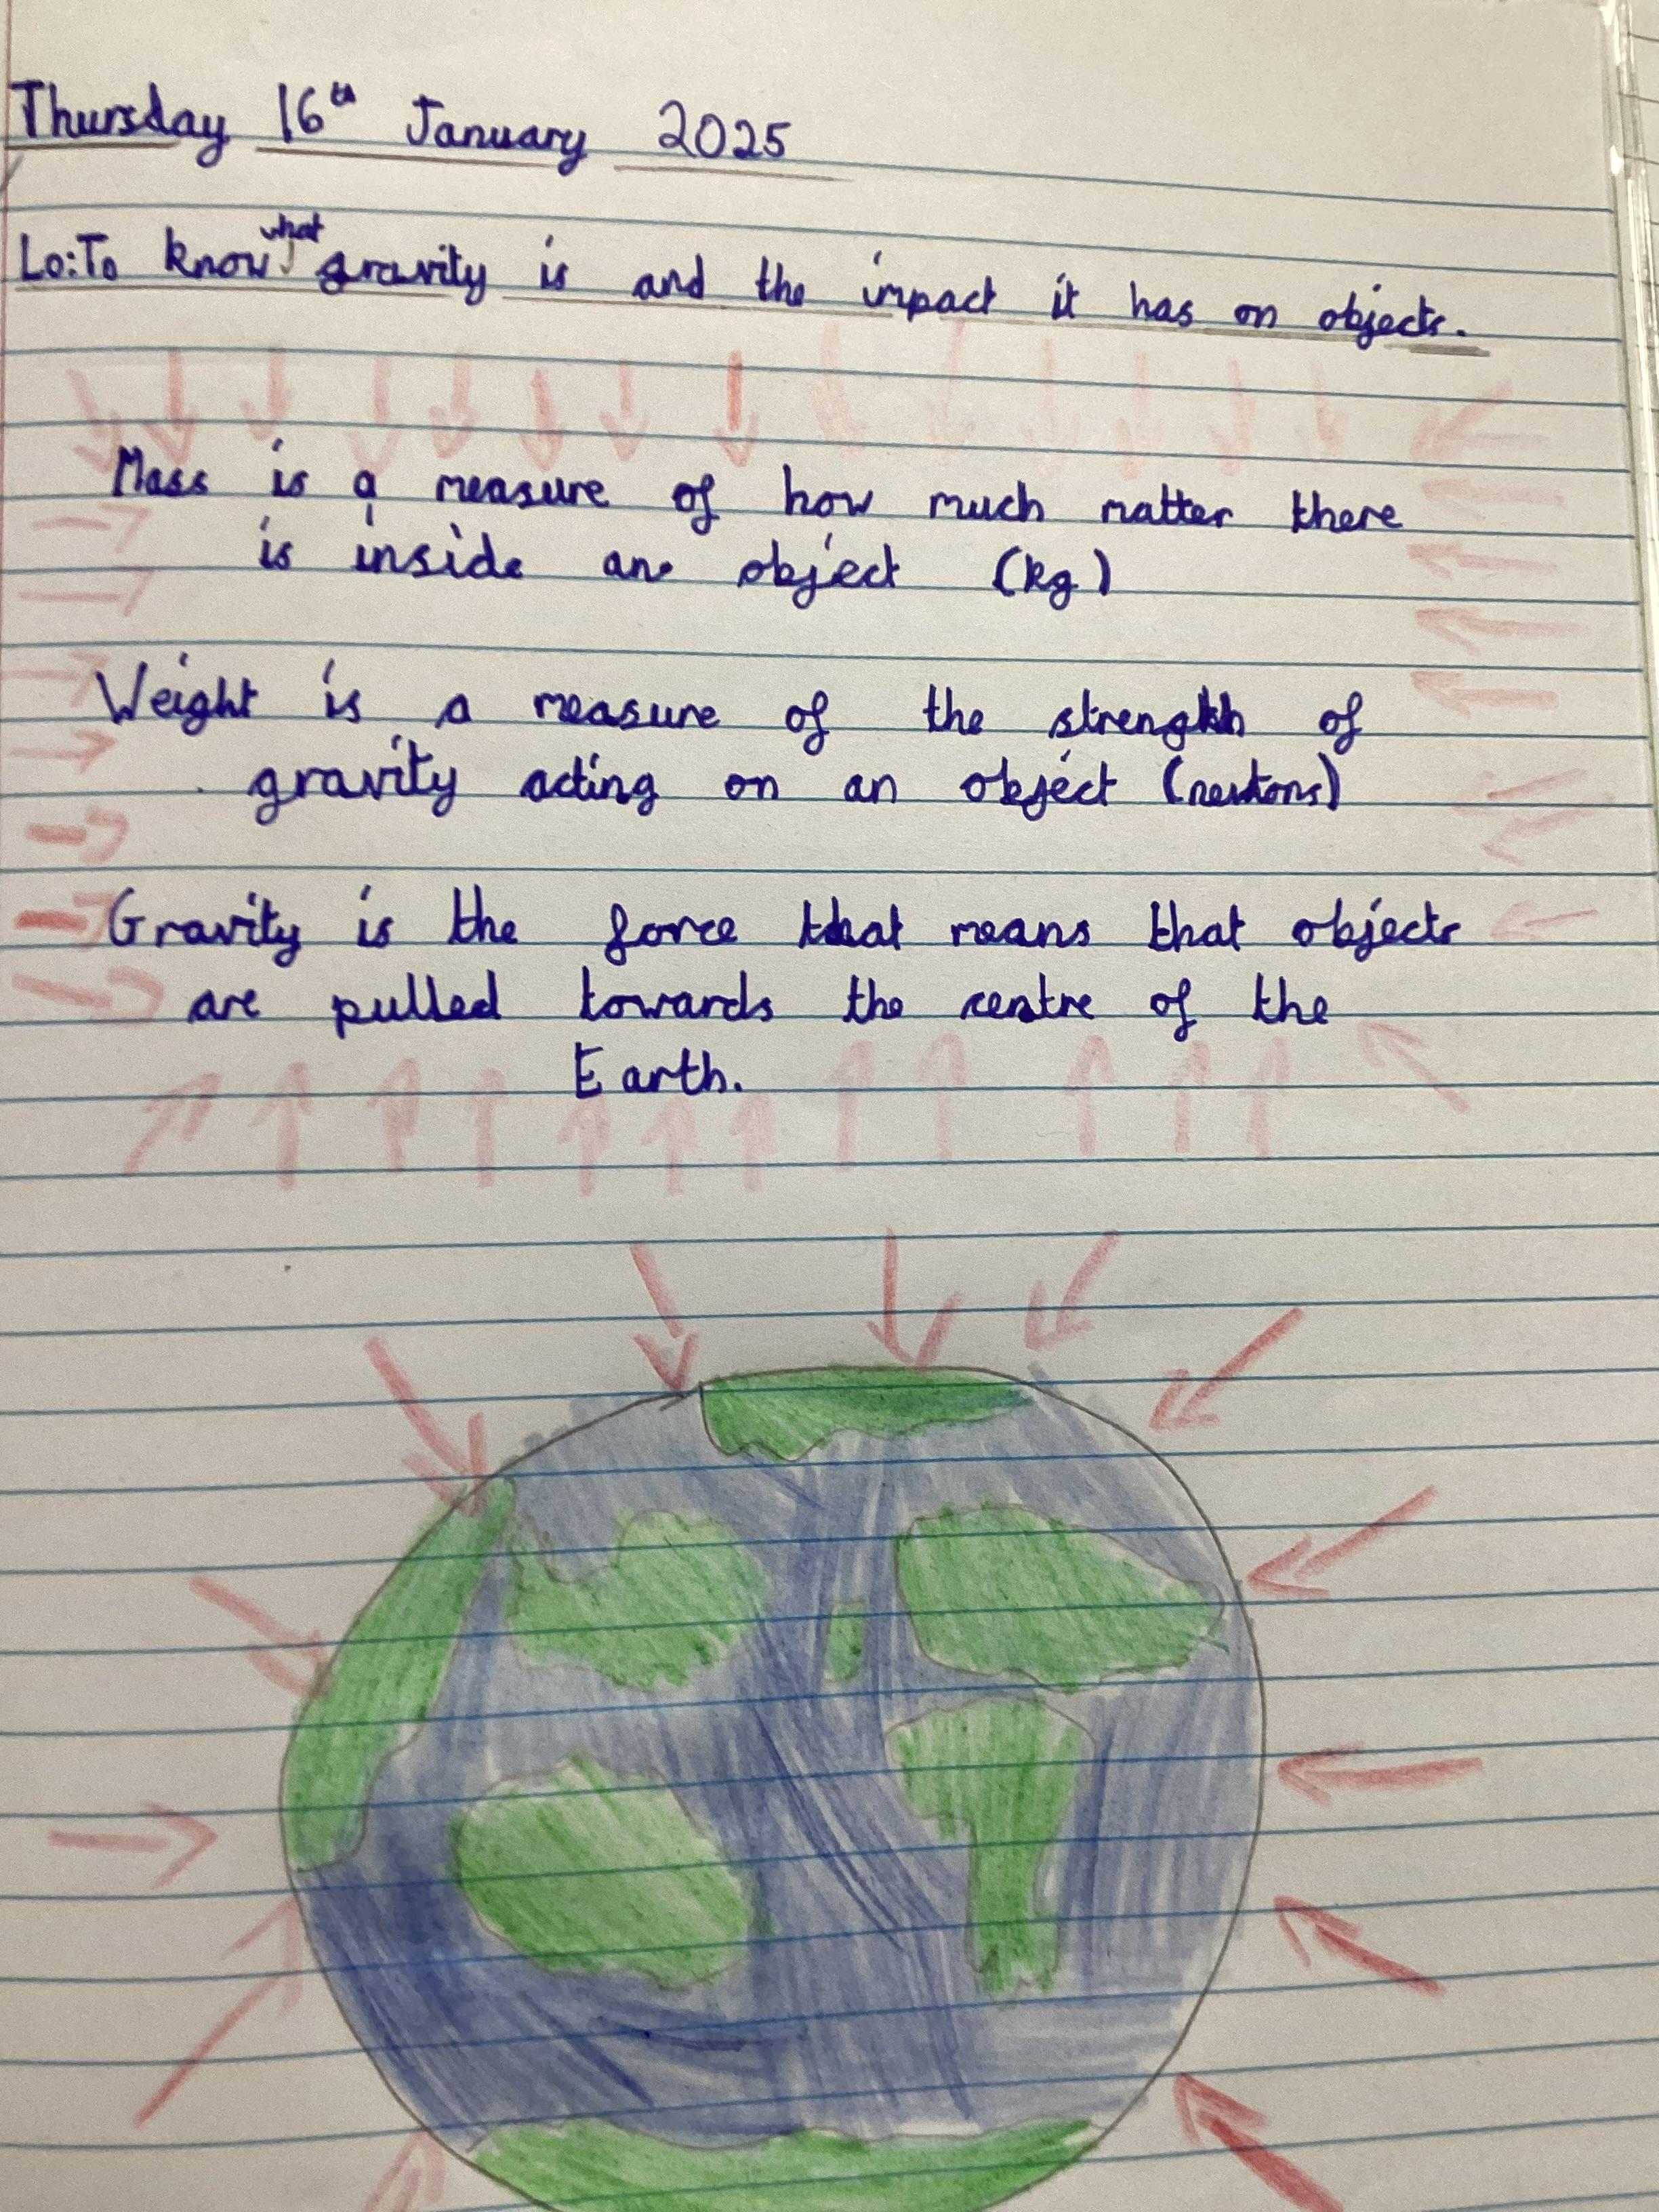 Thursday 16th January 2025
Lo: To know what gravity is and the impact it has on objects.
Mass is a measure of how much matter there
is inside an object (kg)
Weight is a measure of the strength of
gravity acting on an object (newtons)
Gravity is the force that means that objects
are pulled towards the centre of the
Earth.